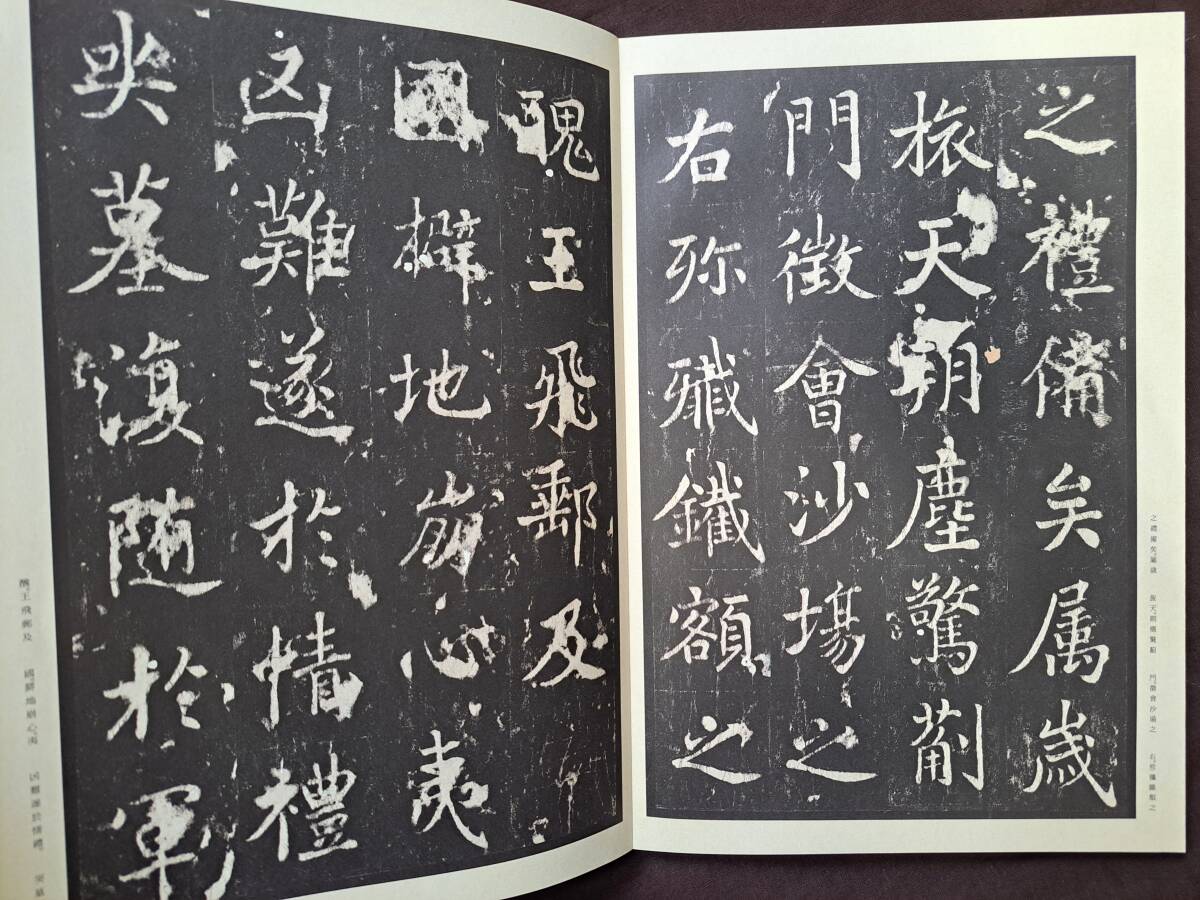 之禮備矣属歲
旅天朔塵驚薊
門徵會沙場之
右殄殲鐵額之
醜王飛郵及
國擗地崩心夷
凶難遂於情禮
哭墓復隨於軍
之禮備矣屬歲　旅天,朔塵驚薊　門徵會沙場之　右殄殲鐵額之
醜王飛郵及　國擗地崩心夷　凶難遂於情禮、　哭墓